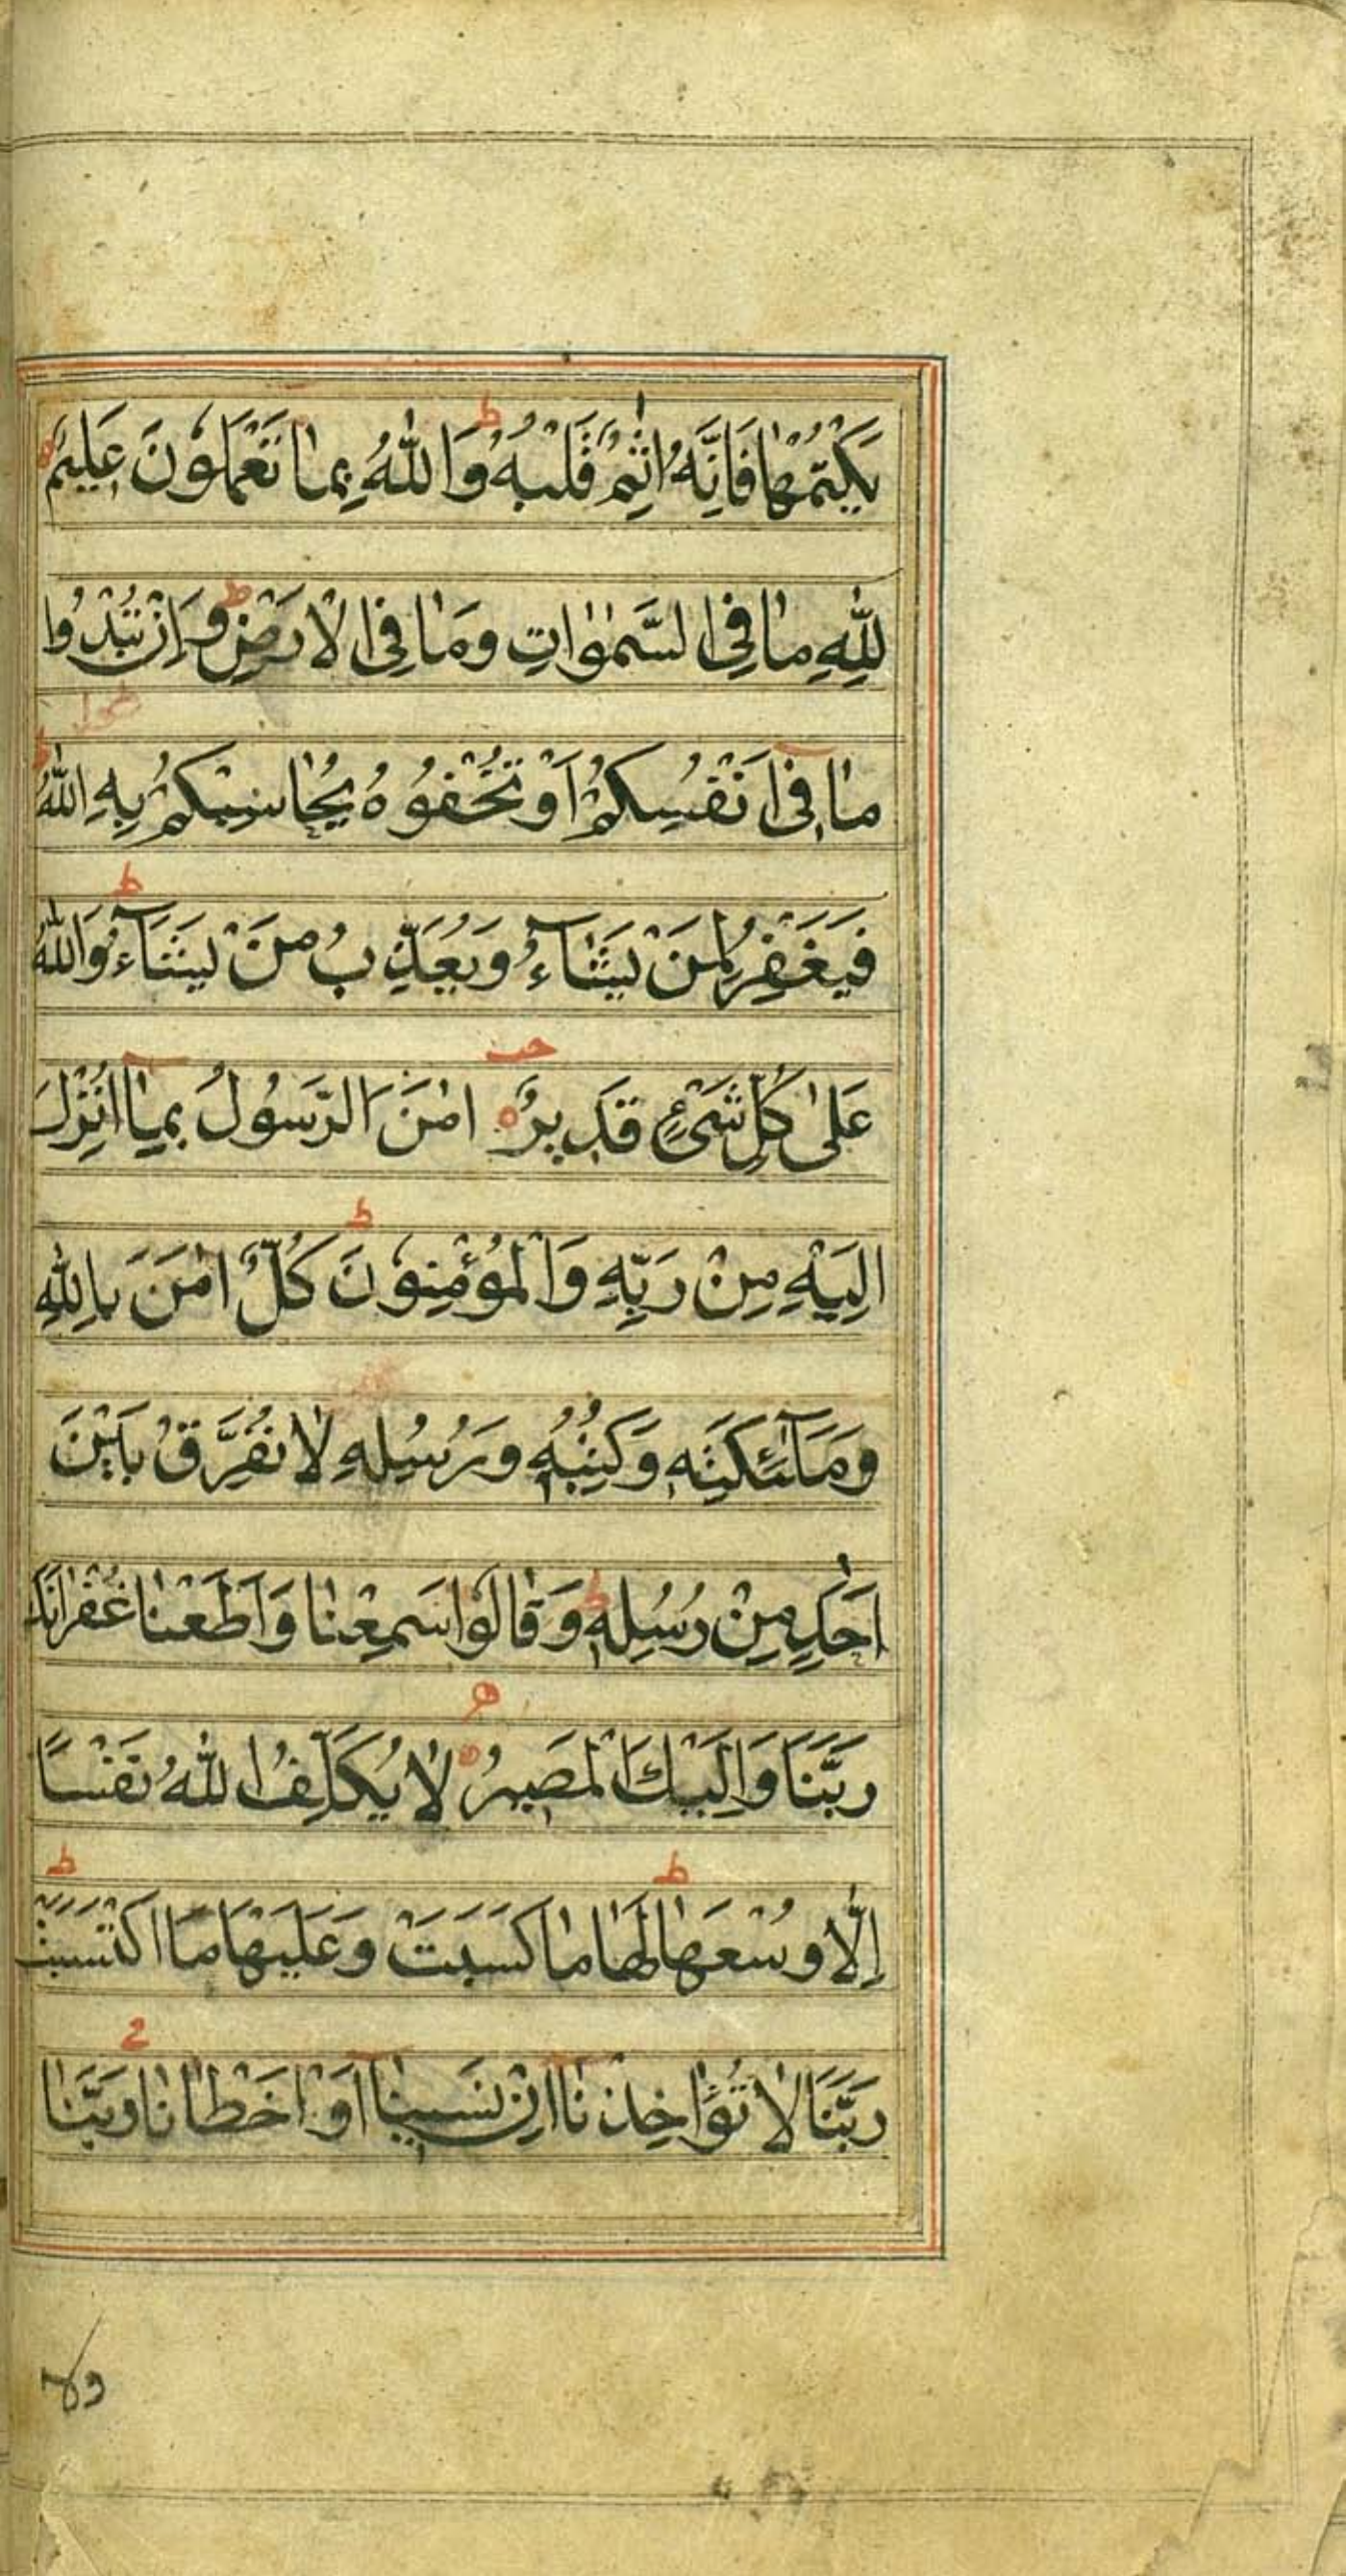 يَكْتُمْهَا فَاِنَّهٗ اٰثِمٌ قَلْبُهٗ ط وَاللّٰهُ بِمَا تَعْمَلُوْنَ عَلِيْمٌ
لِلّٰهِ مَا فِي السَّمٰوٰاتِ وَمَا فِي الْاَرْضِ ط وَاِنْ تُبْدُوْا
مَا فِيْٓ اَنْفُسِكُمْ اَوْ تُخْفُوْهُ يُحَاسِبْكُمْ بِهِ اللّٰهُ ط
فَيَغْفِرُ لِمَنْ يَشَآءُ وَيُعَذِّبُ مَنْ يَشَآءُ ط وَاللّٰهُ
عَلٰى كُلِّ شَيْءٍ قَدِيْرٌ اٰمَنَ الرَّسُوْلُ بِمَآ اُنْزِلَ
اِلَيْهِ مِنْ رَبِّهٖ وَالْمُؤْمِنُوْنَ ط كُلٌّ اٰمَنَ بِاللّٰهِ
وَمَلٰٓئِكَتِهٖ وَكُتُبِهٖ وَرُسُلِهٖ لَا نُفَرِّقُ بَيْنَ
اَحَدٍ مِنْ رُسُلِهٖ ط وَقَالُوْا سَمِعْنَا وَاَطَعْنَا غُفْرَانَكَ
رَبَّنَا وَاِلَيْكَ الْمَصِيْرُ لَا يُكَلِّفُ اللّٰهُ نَفْسًا
اِلَّا وُسْعَهَا ط لَهَا مَا كَسَبَتْ وَعَلَيْهَا مَا اكْتَسَبَتْ ط
رَبَّنَا لَا تُؤَاخِذْنَآ اِنْ نَسِيْنَآ اَوْ اَخْطَاْنَا رَبَّنَا
ولا